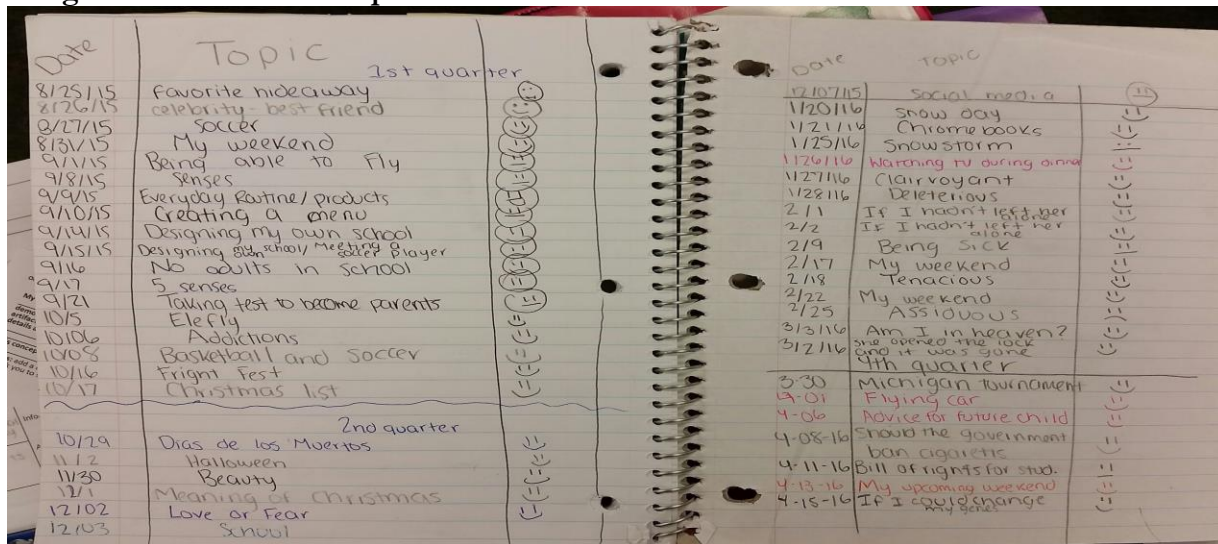 Date Topic
1st quarter
8/25/15 Favorite hideaway
8/26/15 celebrity-best friend
8/27/15 soccer
8/31/15 My weekend
9/1/15 Being able to Fly
9/8/15 Senses
9/9/15 Everyday Routine/products
9/10/15 Creating a menu
9/14/15 Designing my own school
9/15/15 Designing my own school/Meeting a soccer player
9/16 No adults in school
9/17 5 senses
9/21 Taking test to become parents
10/5 Elefly
10/06 Addictions
10/08 Basketball and soccer
10/16 Fright Fest
10/17 Christmas list
2nd quarter
10/29 Dias de los Muertos
11/2 Halloween
11/30 Beauty
12/1 Meaning of Christmas
12/02 Love or Fear
12/03 School
Date Topic
12/07/15 Social media
1/20/16 Snow day
1/21/16 Chromebooks
1/25/16 Snowstorm
1/26/16 Watching tv during dinner
1/27/16 Clairvoyant
1/28/16 Deleterious
2/1 If I hadn't left her alone
2/2 If I hadn't left her alone
2/9 Being Sick
2/17 My weekend
2/18 Tenacious
2/22 My weekend
2/25 Assiduous
3/3/16 Am I in heaven?
3/2/16 she opened the lock
and it was gone
4th quarter
3-30 Michigan tournament
4-01 Flying car
4-06 Advice for future child
4-08-16 Should the government
ban cigarettes
4-11-16 Bill of rights for stud.
4-13-16 My upcoming weekend
4-15-16 If I could change
my genes